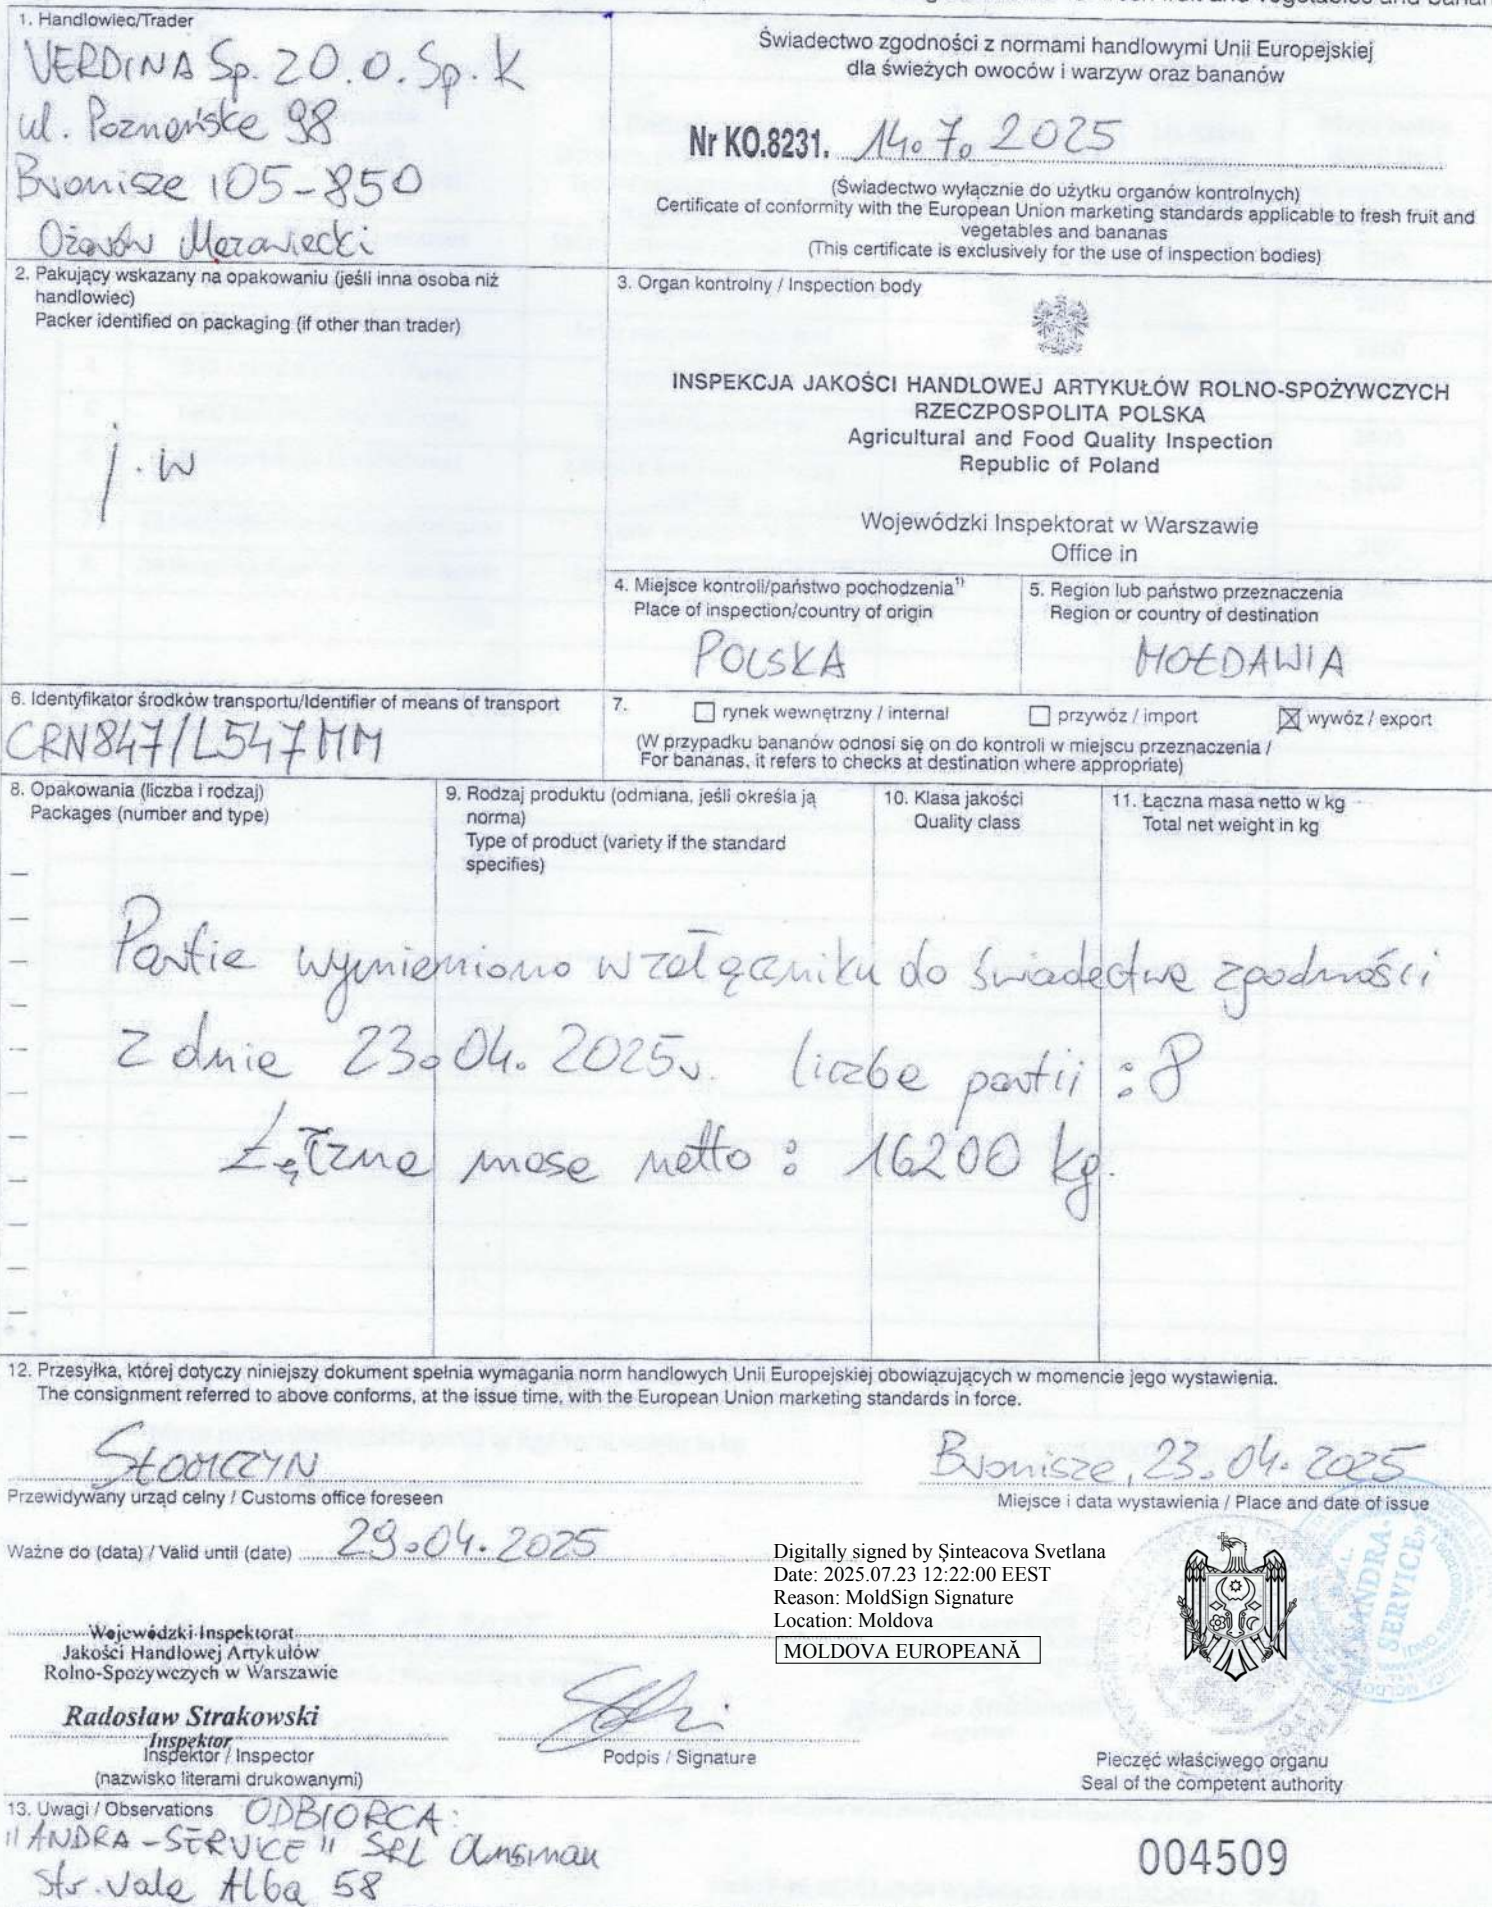 1. Handlowiec/Trader
VERDINA Sp. z o.o. Sp. K
ul. Poznańska 98
Bronisze 105-850
Ożarów Mazowiecki
Świadectwo zgodności z normami handlowymi Unii Europejskiej
dla świeżych owoców i warzyw oraz bananów
Nr KO.8231. 14.7.2025
(Świadectwo wyłącznie do użytku organów kontrolnych)
Certificate of conformity with the European Union marketing standards applicable to fresh fruit and
vegetables and bananas
(This certificate is exclusively for the use of inspection bodies)
2. Pakujący wskazany na opakowaniu (jeśli inna osoba niż
handlowiec)
Packer identified on packaging (if other than trader)
j.w
3. Organ kontrolny / Inspection body
INSPEKCJA JAKOŚCI HANDLOWEJ ARTYKUŁÓW ROLNO-SPOŻYWCZYCH
RZECZPOSPOLITA POLSKA
Agricultural and Food Quality Inspection
Republic of Poland
Wojewódzki Inspektorat w Warszawie
Office in
4. Miejsce kontroli/państwo pochodzenia¹⁾
Place of inspection/country of origin
POLSKA
5. Region lub państwo przeznaczenia
Region or country of destination
MOŁDAWIA
6. Identyfikator środków transportu/Identifier of means of transport
CRN847/L547MM
7. rynek wewnętrzny / internal przywóz / import wywóz / export
(W przypadku bananów odnosi się on do kontroli w miejscu przeznaczenia /
For bananas, it refers to checks at destination where appropriate)
8. Opakowania (liczba i rodzaj)
Packages (number and type)
9. Rodzaj produktu (odmiana, jeśli określa ją
norma)
Type of product (variety if the standard
specifies)
10. Klasa jakości
Quality class
11. Łączna masa netto w kg
Total net weight in kg
Partie wymieniono w załączniku do świadectwa zgodności
z dnia 23.04.2025r. liczba partii : 8
Łączna masa netto : 16200 kg.
12. Przesyłka, której dotyczy niniejszy dokument spełnia wymagania norm handlowych Unii Europejskiej obowiązujących w momencie jego wystawienia.
The consignment referred to above conforms, at the issue time, with the European Union marketing standards in force.
SŁOMCZYN
Przewidywany urząd celny / Customs office foreseen
Bronisze, 23.04.2025
Miejsce i data wystawienia / Place and date of issue
Ważne do (data) / Valid until (date) 29.04.2025
Digitally signed by Șinteacova Svetlana
Date: 2025.07.23 12:22:00 EEST
Reason: MoldSign Signature
Location: Moldova
MOLDOVA EUROPEANĂ
Wojewódzki Inspektorat
Jakości Handlowej Artykułów
Rolno-Spożywczych w Warszawie
Radosław Strakowski
Inspektor
Inspektor / Inspector
(nazwisko literami drukowanymi)
Podpis / Signature
SERVICE»
Pieczęć właściwego organu
Seal of the competent authority
13. Uwagi / Observations ODBIORCA:
"ANDRA-SERVICE" SRL
Str. Vale Alba 58
004509